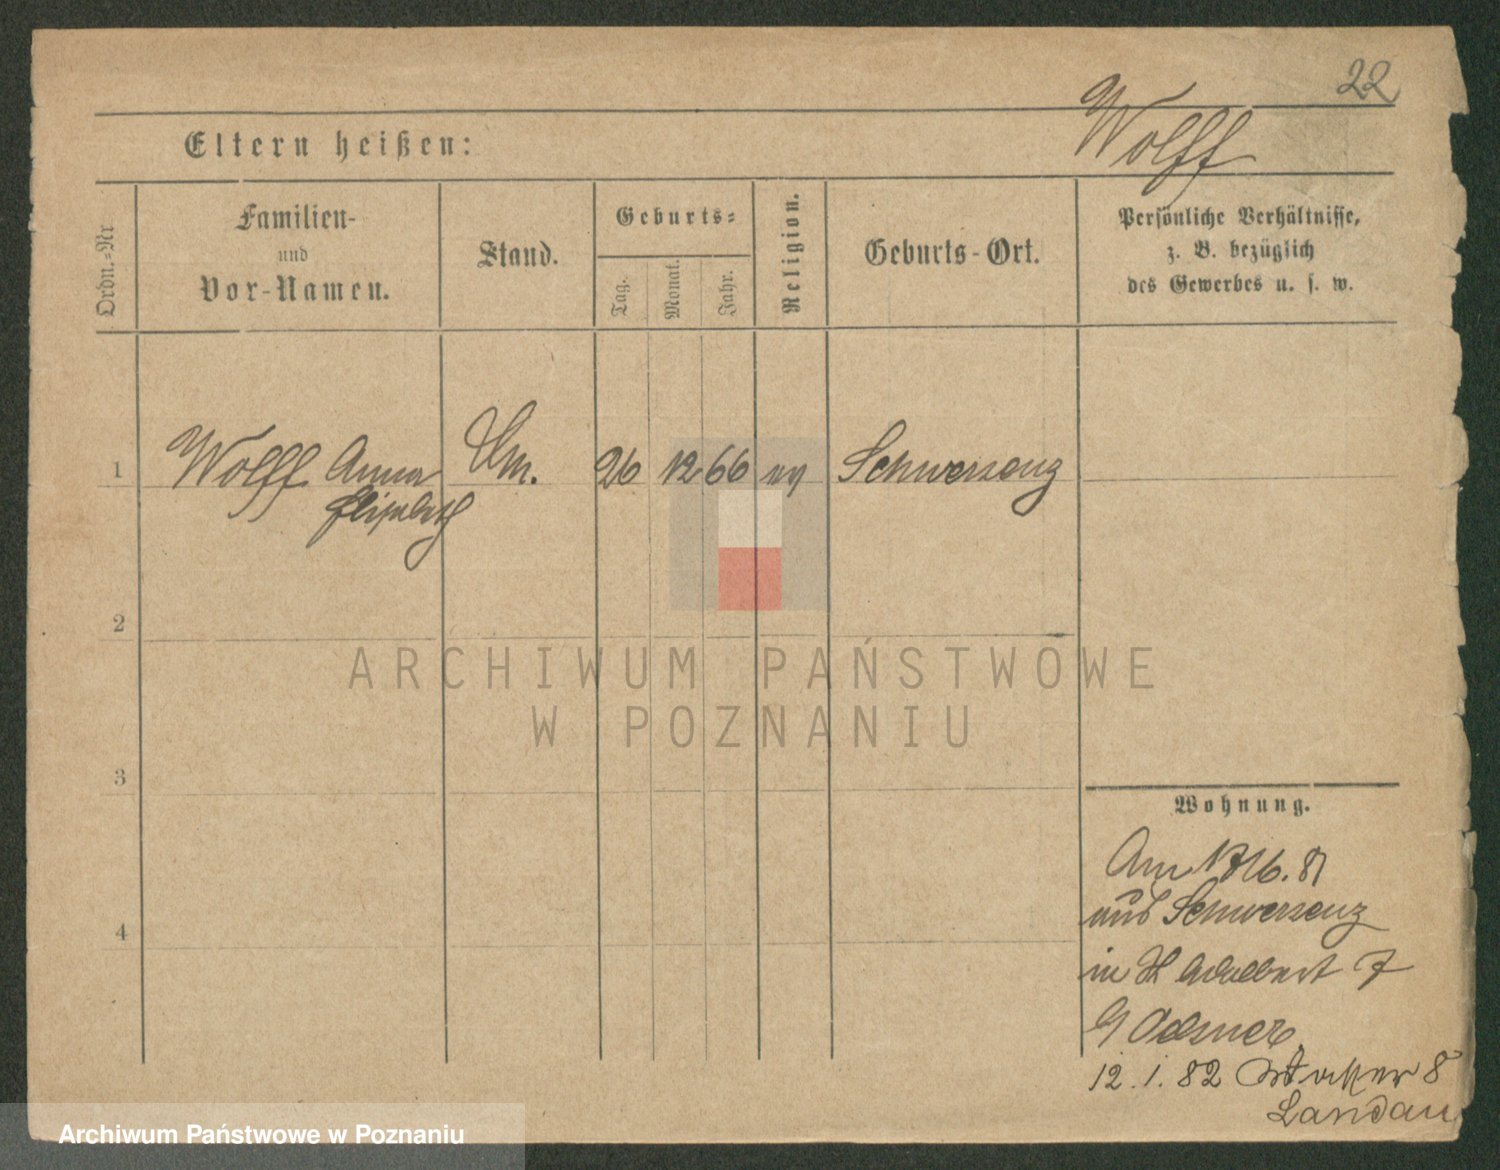 22
Wolff
Eltern heißen:
Ordn.-Nr
Familien-
und
Vor-Namen.
Stand.
Geburts-
Tag.
Monat.
Jahr.
Religion.
Geburts-Ort.
Persönliche Verhältnisse,
z. B. bezüglich
des Gewerbes u. s. w.
1 Wolff Anna 26 12 66 ev Schwersenz
Elisabeth
2
3
4
Wohnung.
Am
aus Schwersenz
in St Adalbert 7
12. 1. 82 8
Landau
ARCHIWUM PAŃSTWOWE
W POZNANIU
Archiwum Państwowe w Poznaniu